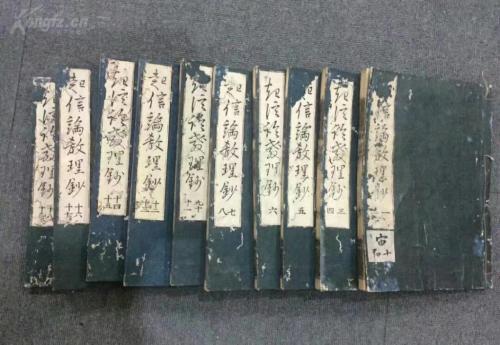 Kongfz.cn
起信論教理鈔 一
起信論教理鈔 三 四
起信論教理鈔 五
起信論教理鈔 六
起信論教理鈔 七 八
起信論教理鈔 九 十 十一
起信論教理鈔 十二 十三
起信論教理鈔 十四
起信論教理鈔 十六
起信論教理鈔